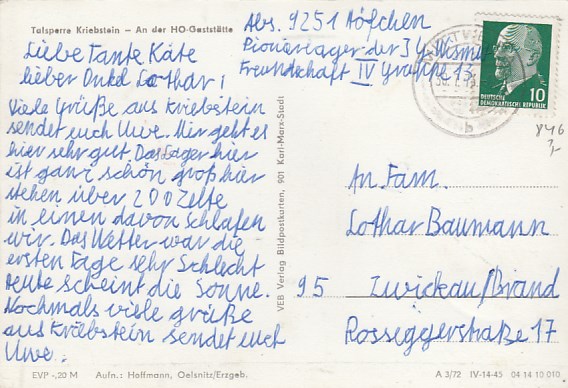 Talsperre Kriebstein – An der HO-Gaststätte
Abs. 9251 Höfchen
Pionierlager der IG-Wismut
Freundschaft IV Gruppe 13
Liebe Tante Käte
lieber Onkel Lothar!
Viele Grüße aus Kriebstein
sendet euch Uwe. Mir geht es
hier sehr gut. Das Lager hier
ist ganz schön groß hier
stehen über 200 Zelte
in einen davon schlafen
wir. Das Wetter war die
ersten Tage sehr Schlecht
heute scheint die Sonne.
Nochmals viele grüße
aus Kriebstein sendet euch
Uwe.
VEB Verlag Bildpostkarten, 901 Karl-Marx-Stadt
10
DEUTSCHE
DEMOKRATISCHE REPUBLIK
b
846
An Fam.
Lothar Baumann
95 Zwickau/Brand
Rosseggerstraße 17
EVP -,20 M Aufn.: Hoffmann, Oelsnitz/Erzgeb.
A 3/72 IV-14-45 04 14 10 010